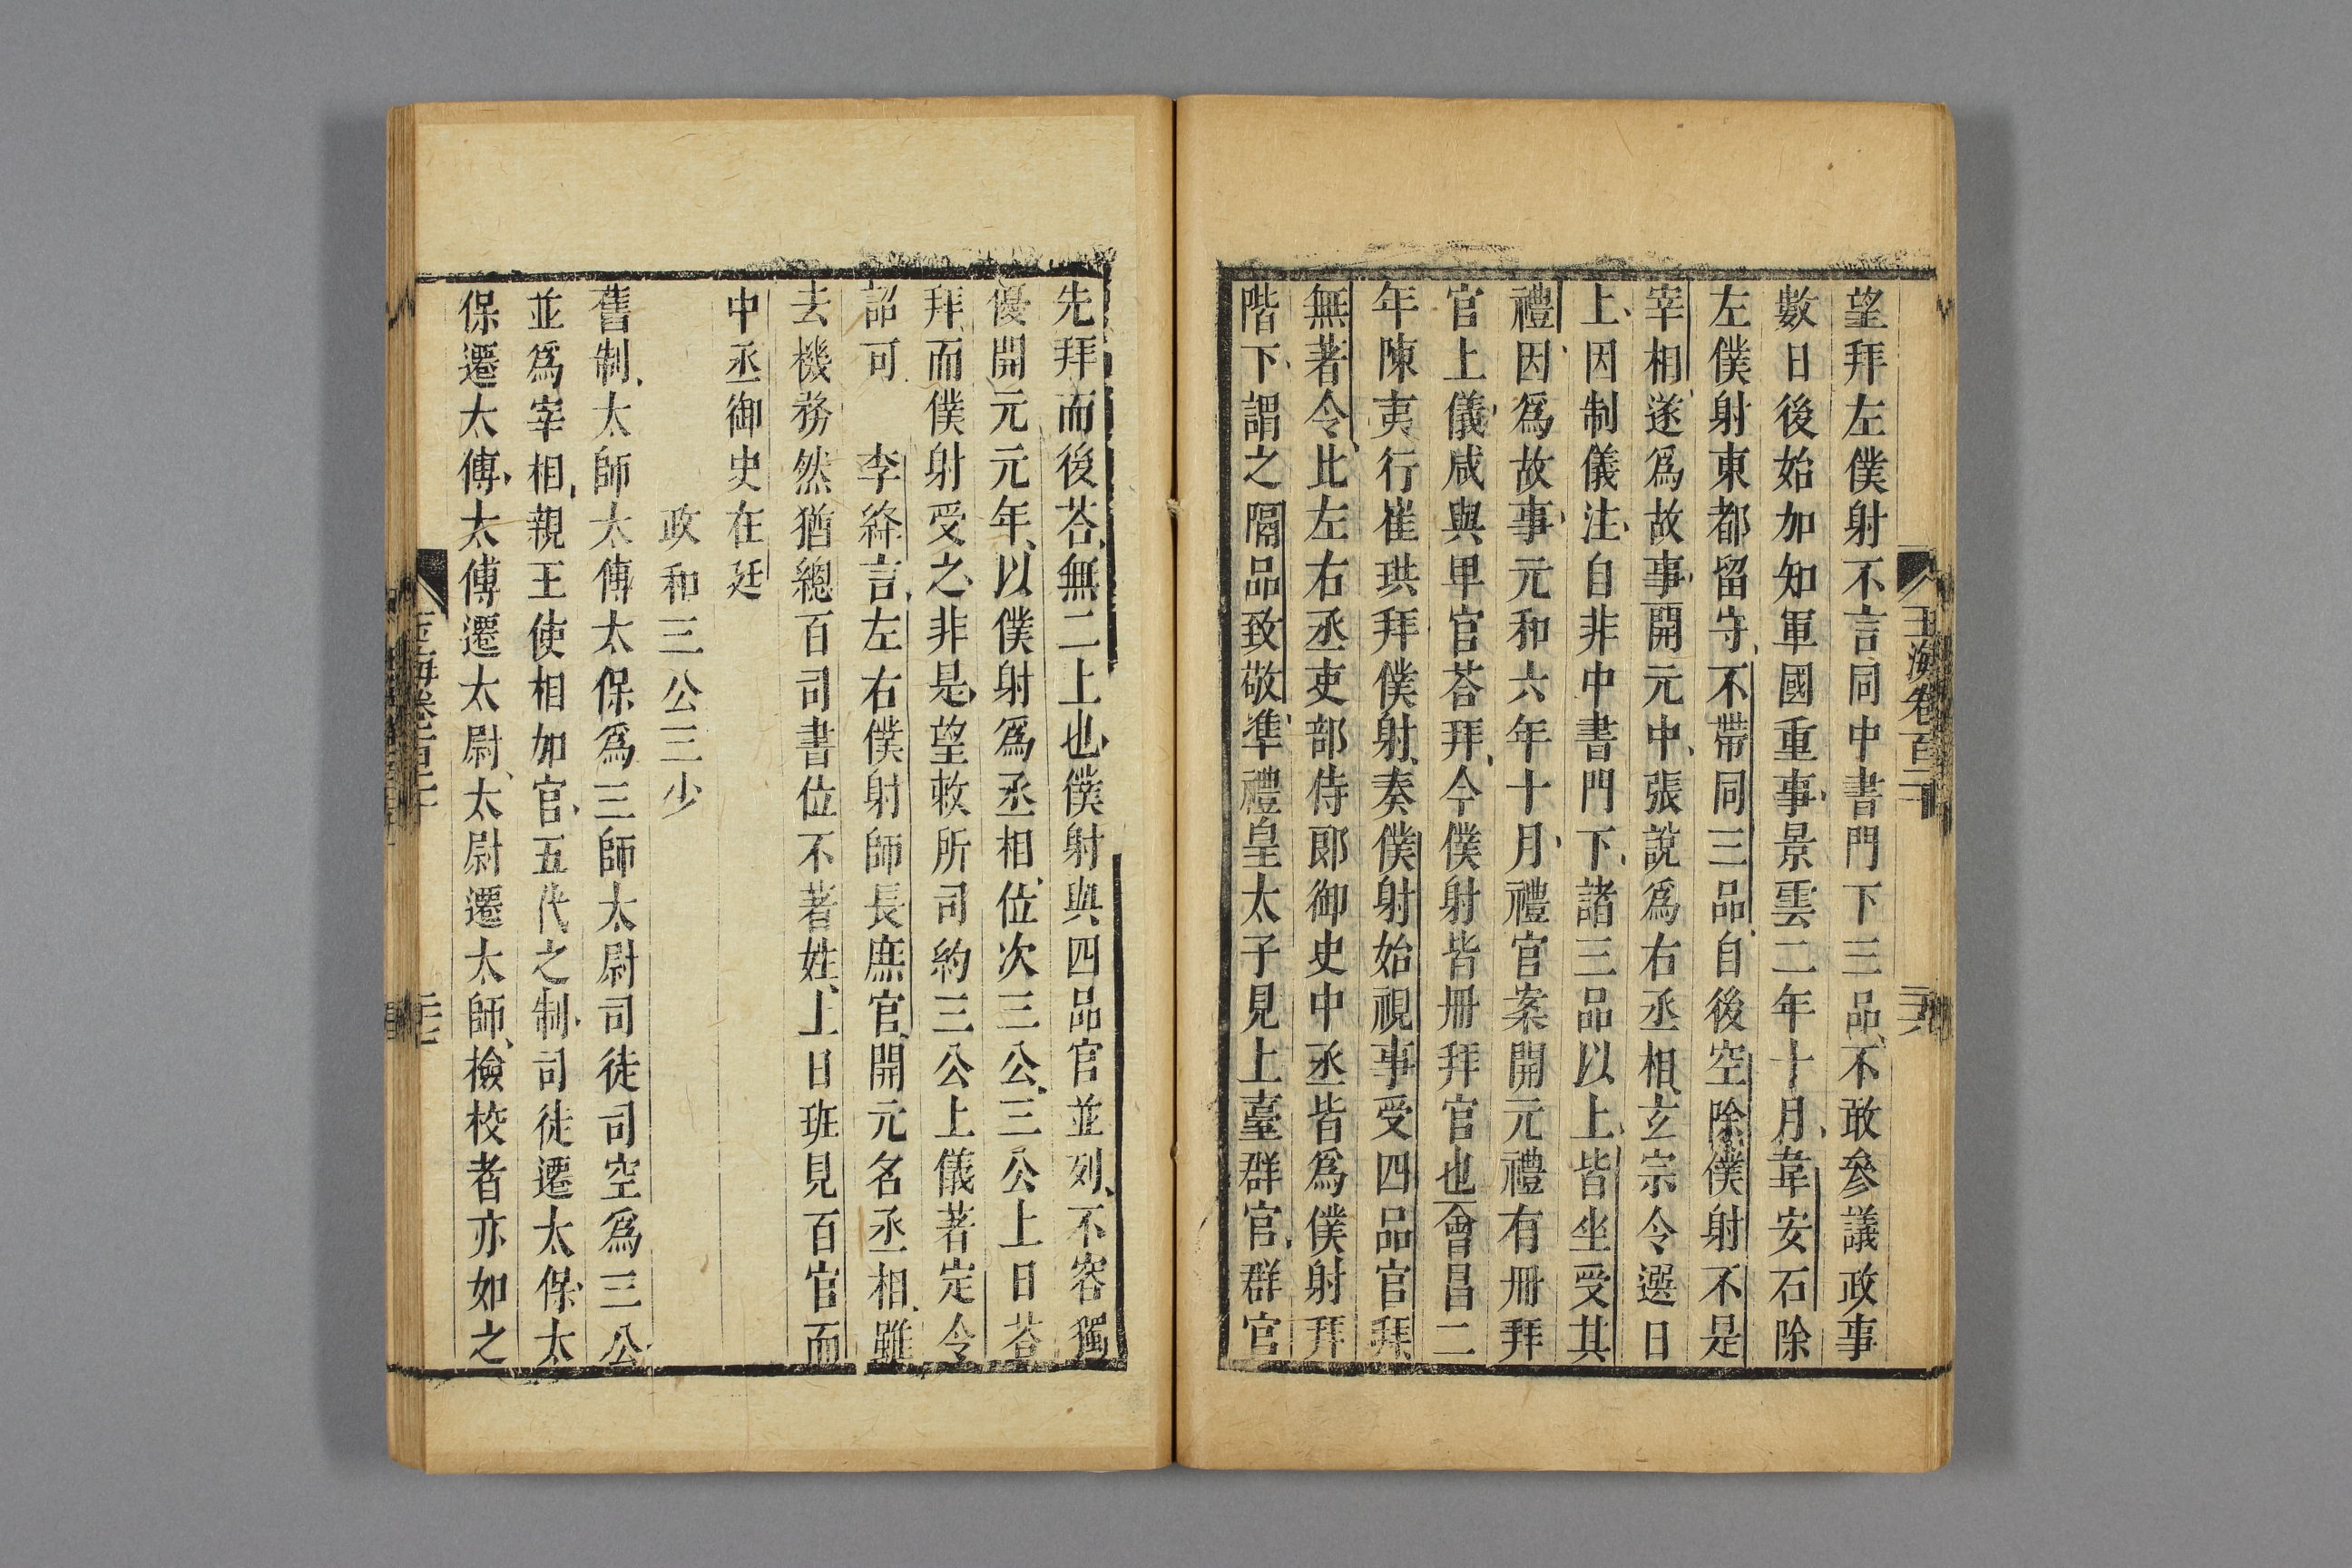 望拜左僕射不言同中書門下三品不敢參議政事
數日後始加知軍國重事景雲二年十月韋安石除
左僕射東都留守不帶同三品自後空除僕射不是
宰相遂爲故事開元中張說爲右丞相玄宗令選日
上因制儀注自非中書門下諸三品以上皆坐受其
禮因爲故事元和六年十月禮官案開元禮有冊拜
官上儀咸與卑官荅拜今僕射皆冊拜官也會昌二
年陳夷行崔珙拜僕射奏僕射始視事受四品官拜
無著令比左右丞吏部侍郎御史中丞皆爲僕射拜
階下謂之隔品致敬準禮皇太子見上臺群官群官
先拜而後荅無二上也僕射與四品官並列不容獨
優開元元年以僕射爲丞相位次三公三公上日荅
拜而僕射受之非是望敕所司約三公上儀著定令
詔可　李絳言左右僕射師長庶官開元名丞相雖
去機務然猶總百司書位不著姓上日班見百官而
中丞御史在廷
政和三公三少
舊制太師太傅太保爲三師太尉司徒司空爲三公
並爲宰相親王使相加官五代之制司徒遷太保太
保遷太傅太傅遷太尉太尉遷太師檢校者亦如之